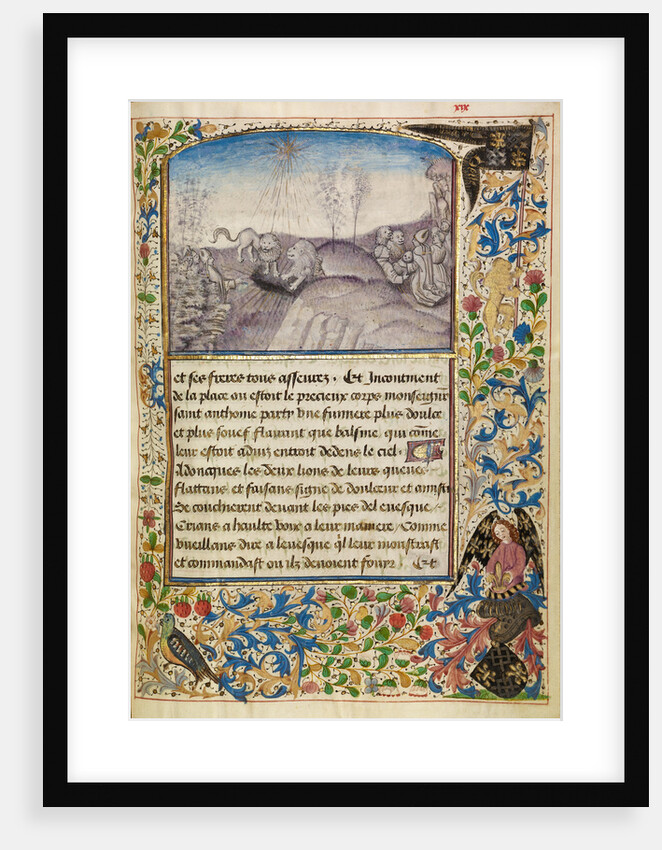 xix
et ses freres tous asseurez . Et Incontinent
de la place ou estoit le precieux corps monseignr
saint anthoine party vne fumiere plus doulce
et plus souef flairant que balsme qui come
leur estoit aduiz entroit dedens le ciel .
Adoncques les deux lions de leurs queues
flattans et faisans signe de douleur et
Se coucherent deuant les pies del euesque
Crians a haulte voix a leur maniere Comme
vueillans dire a leuesque ql leur monstrast
et commandast ou ilz deuoient fouir . Et